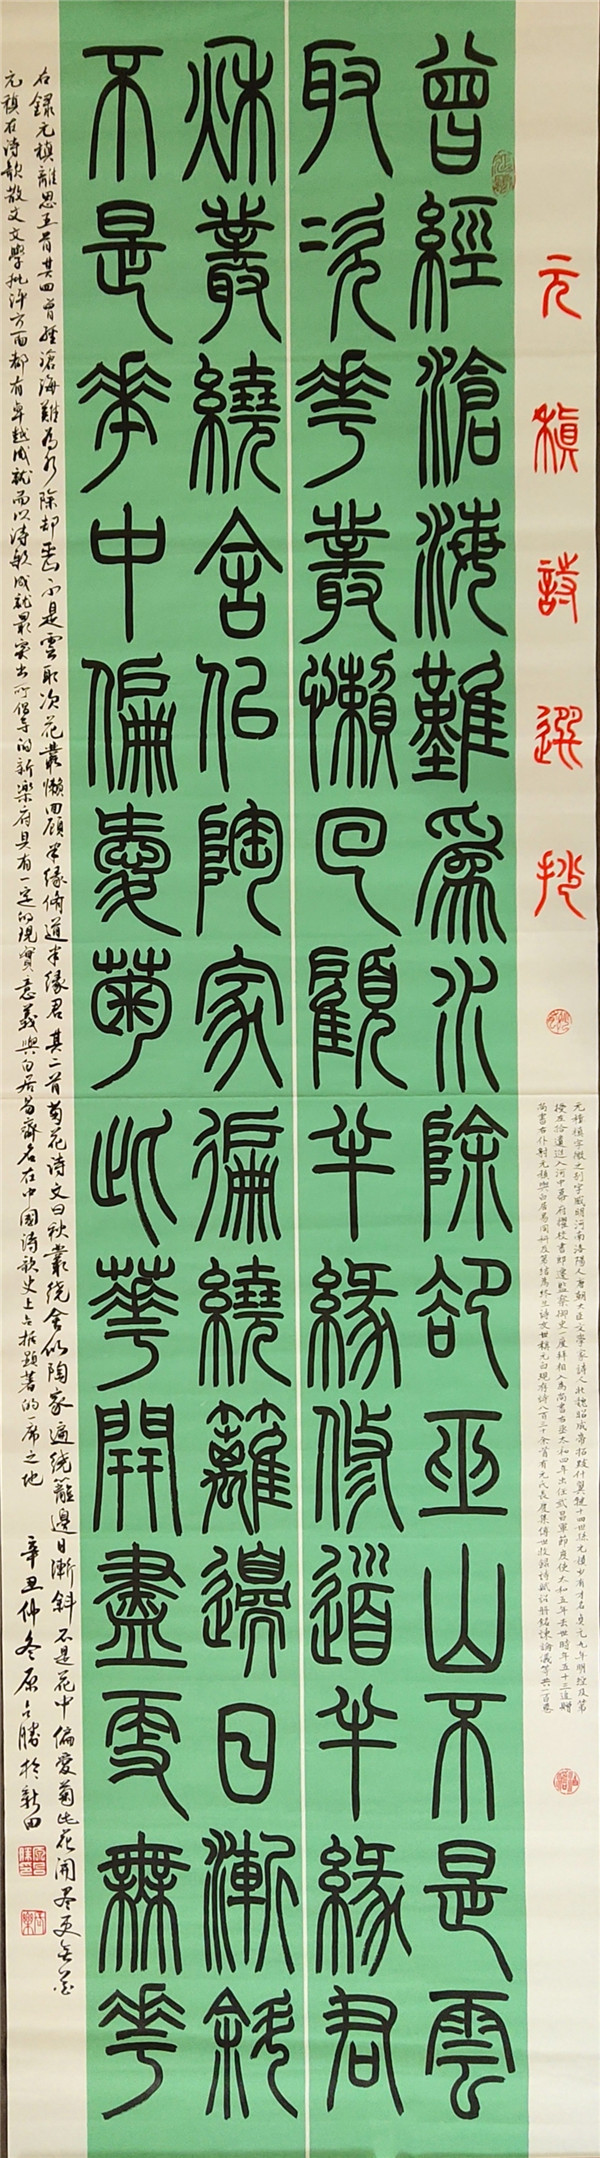 元稹詩選抄
元稹稹字微之别字威明河南洛陽人唐朝大臣文學家詩人北魏昭成帝拓跋什翼犍十四世孫元稹少有才名貞元九年明經及第
授左拾遺進入河中幕府擢校書郎遷監察御史一度拜相入為尚書右丞太和四年出任武昌軍節度使大和五年去世時年五十三追贈
尚書右仆射元稹與白居易同科及第結為終生詩友世稱元白現存詩八百三十余首有元氏長慶集傳世收錄詩賦詔册銘諫論議等共一百卷
曾經滄海難爲水除卻巫山不是雲
取次花叢懶回顧半緣修道半緣君
秌叢繞舍佀陶家徧繞籬邊日漸斜
不是華中偏愛菊此華開盡更無花
右錄元稹離思五首其四曾經滄海難為水除却巫山不是雲取次花叢懶回顧半緣脩道半緣君其二首菊花诗文曰秋叢绕舍似陶家遍绕籬邊日漸斜不是花中偏愛菊此花開尽更無花
元稹在诗歌散文文學批评方面都有卓越成就而以诗歌成就最突出所倡导的新樂府具有一定的現實意義與白居易齊名在中國诗歌史上占据顯著的一席之地 辛丑仲冬原占勝於新田